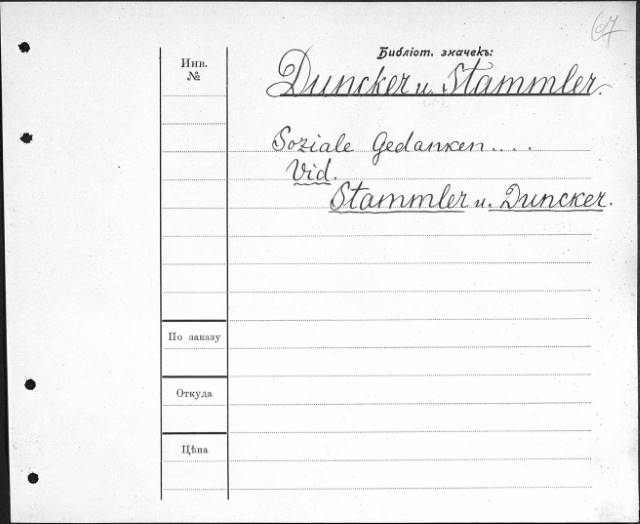 67
Библіот. значекъ:
Инв.
№
Duncker u. Stammler.
Soziale Gedanken....
Vid.
Stammler u. Duncker.
По заказу
Откуда
Цѣна